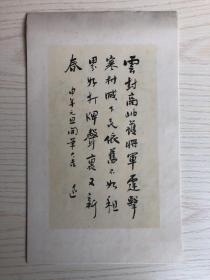 雲封高岫護將軍霆擊
寒村滅下民依舊不如租
界好打牌聲裏又新
春
申年元旦開筆大吉
迅